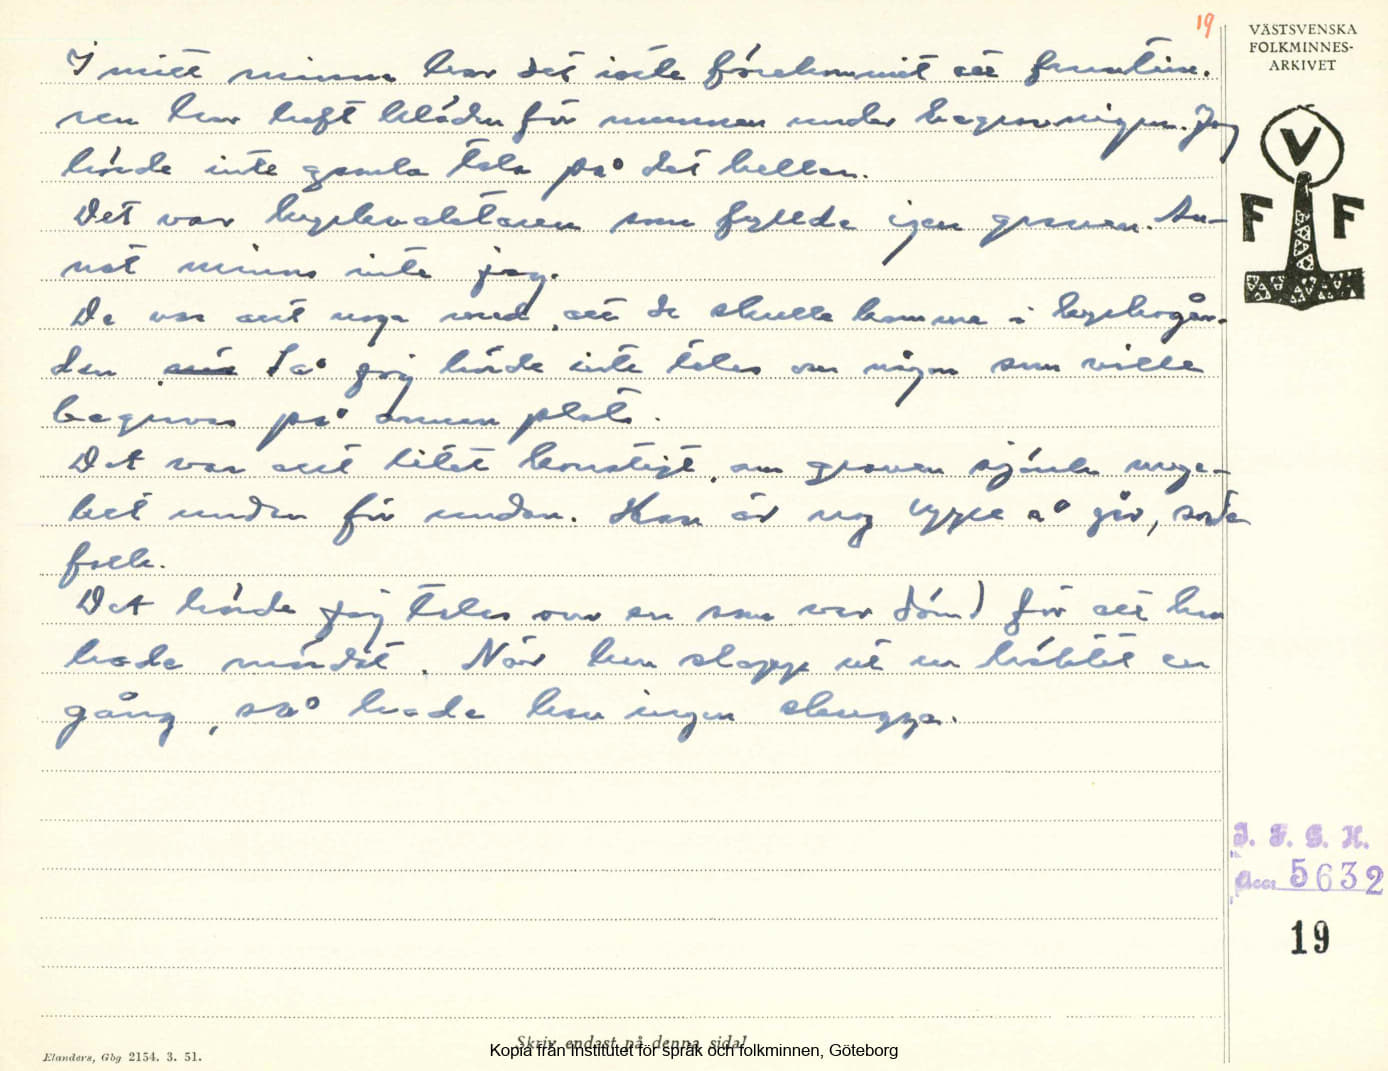 19
VÄSTSVENSKA
FOLKMINNES-
ARKIVET
I mitt minne har det inte förekommit att fruntim-
ren har haft kläden för munnen under begravningen. Jag
hörde inte gamla tala på det heller.
Det var kyrkvaktaren som fyllde igen graven. An-
nat minns inte jag.
De var allt noga med, att de skulle komma i kyrkogår-
den så jag hörde inte talas om någon som ville
begravas på annan plats.
Det var allt litet konstigt, om graven sjönk myc-
ket undan för undan. Han är nog uppe å går, sade
folk.
Det hörde jag talas om en som var dömd för att han
hade mördat. När han slapp ut ur häktet en
gång, så hade han ingen skugga.
V
F F
I. F. G. H.
Acc: 5632
19
Skriv endast på denna sida!
Kopia från Institutet för språk och folkminnen, Göteborg
Elanders, Gbg 2154. 3. 51.